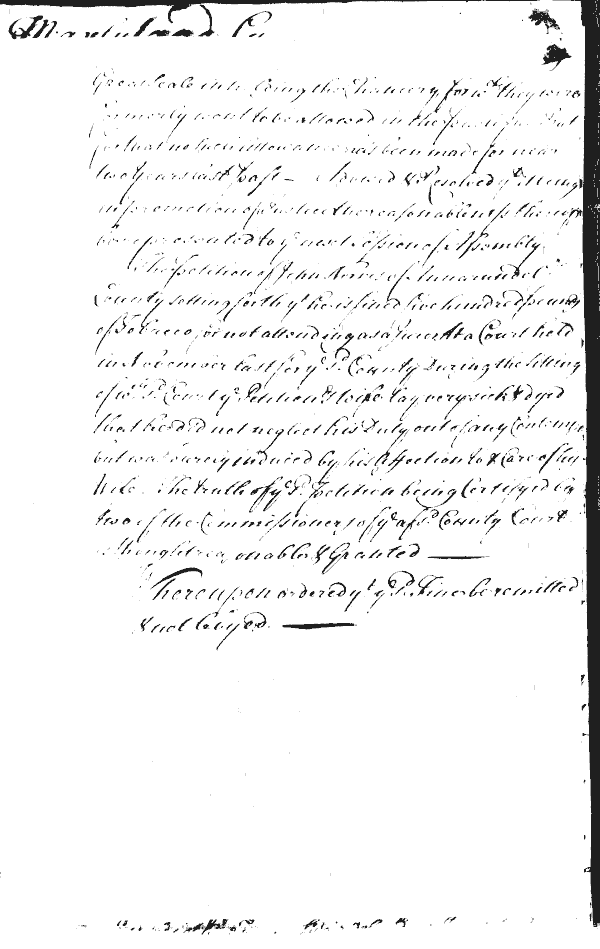 Maryland ss
Great Seale into being the Chancery for wch they were
formerly wont to be allowed in the
for that no such allowance has been made for near
two years last past — Moved & Resolved yt
in promotion of Justice the reasonableness thereof
be represented to ye next Session of Assembly.
The Petition of John of Annarundel
County setting forth yt he is fined five hundred pounds
of Tobacco for not attending as a Juror At a Court held
in November last for ye sd County During the sitting
of wch sd Court ye Petitionrs wife lay very sick & dyed
that he did not neglect his Duty out of any Contempt
but was surely induced by his Affection to & Care of his
Wife. The truth of ye sd Petition being Certifyed by
two of the Commissioners of ye afsd County Court
is thought reasonable & Granted —
Thereupon ordered yt ye sd Fine be remitted
& not levyed. —